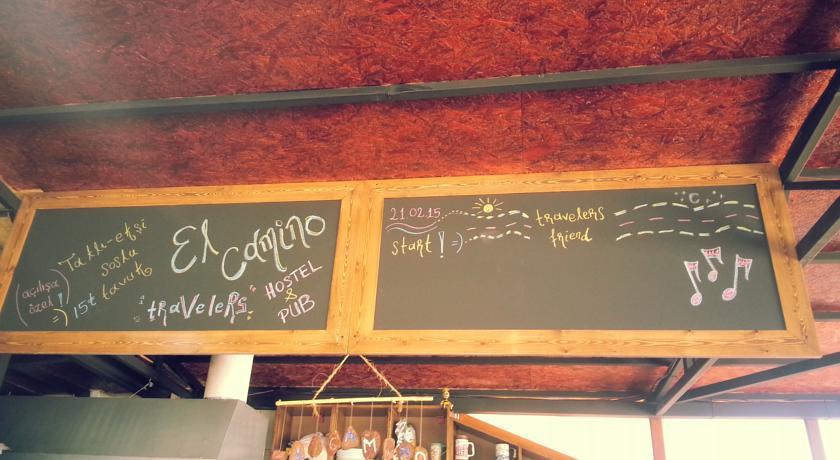 Tatlı-ekşi
soslu
tavuk
(açılışa
özel!
=) 15₺
El
Camino
"travelers"
HOSTEL
&
PUB
21.02.15
start! =)
travelers
friend